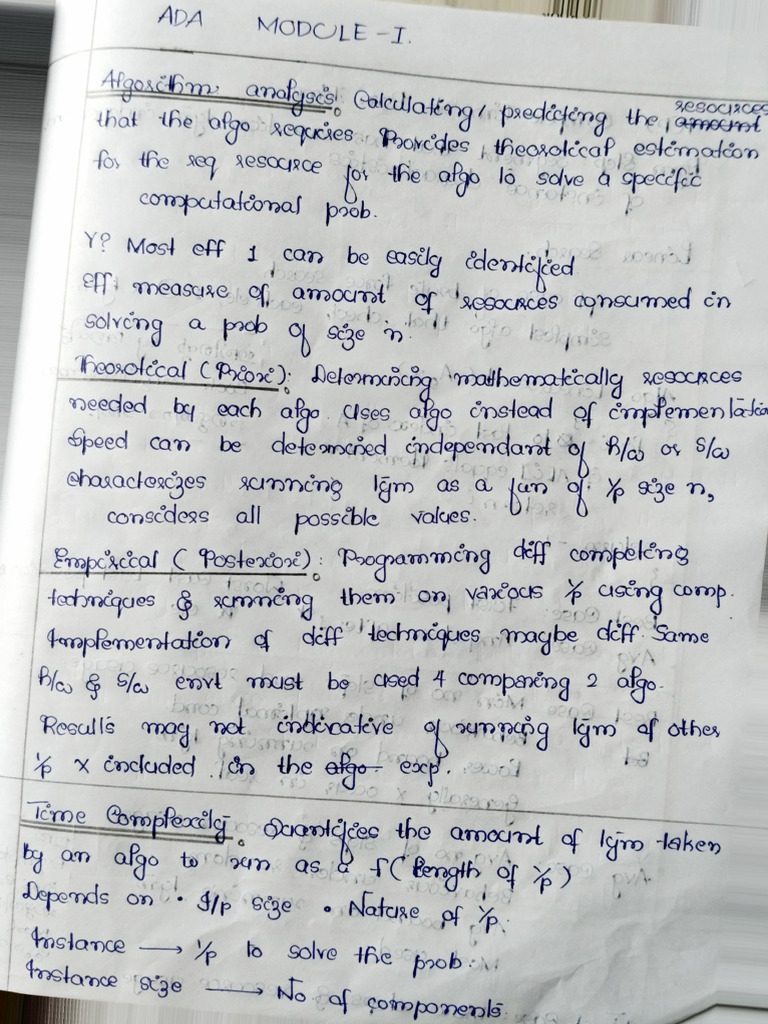 ADA MODULE - I.
Algorithm analysis: Calculating/ predicting the resources amount
that the algo requries Provides theorotical estimation
for the req resource for the algo to solve a specific
computational prob.
Y? Most eff 1 can be easily identified
Eff: measure of amount of resources consumed in
solving a prob of size n.
Theorotical (Priori): Determining mathematically resources
needed by each algo. Uses algo instead of implementation
Speed can be determined independant of h/w or s/w
Characterizes running tym as a fun of i/p size n,
considers all possible values.
Empirical (Posteriori): Programming diff competing
techniques & running them on various i/p using comp.
Implementation of diff techniques maybe diff Same
h/w & s/w envt must be used 4 comparing 2 algo.
Results may not indicative of running tym of other
i/p x included in the algo exp.
Time Complexity: Quantifies the amount of tym taken
by an algo to run as a f(length of i/p)
Depends on • I/p size • Nature of i/p.
Instance → i/p to solve the prob.
Instance size → No of components.